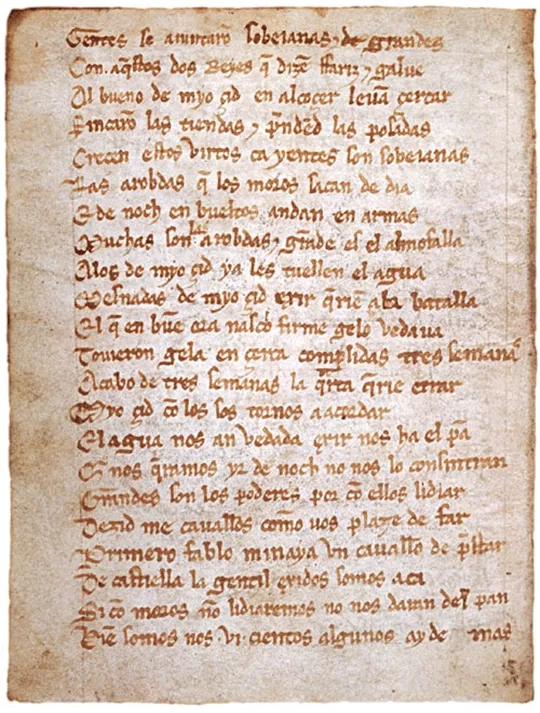 Gentes se aiuntarõ sobeianas ⁊ de grandes
Con. aq̃stos dos Reyes q̃ dizẽ ffariz ⁊ galue
Al bueno de myo çid en alcoçer leuã çercar
Fincarõ las tiendas ⁊ p̃nded̃ las posadas
Crecen estos virtos ca yentes son sobeianas
Las arobdas q̃ los moros sacan de dia
E de noch en bueltos andan en armas
Muchas son las arobdas ⁊ grãde es el almofalla
Alos de myo çid ya les tuellen el agua
Mesnadas de myo çid exir q̃riẽ ala batalla
El q̃ en buẽ ora nasco firme gelo vedaua
Touieron gela en çerca complidas tres semanas
Acabo de tres semanas la q̃rta q̃rie entrar
Myo çid cõ los sos tornos a acordar
El agua nos an vedada exir nos ha el pã
Q̃ nos q̃ramos yr de noch no nos lo consintran
Grandes son los poderes por cõ ellos lidiar
Dezid me cavallos cõmo uos plaze de far
Primero fablo minaya vn cauallo de p̃star
De castiella la gentil exidos somos aca
Si cõ moros nõ lidiaremos no nos daran del pan
Biẽ somos nos vi. cientos algunos ay de mas